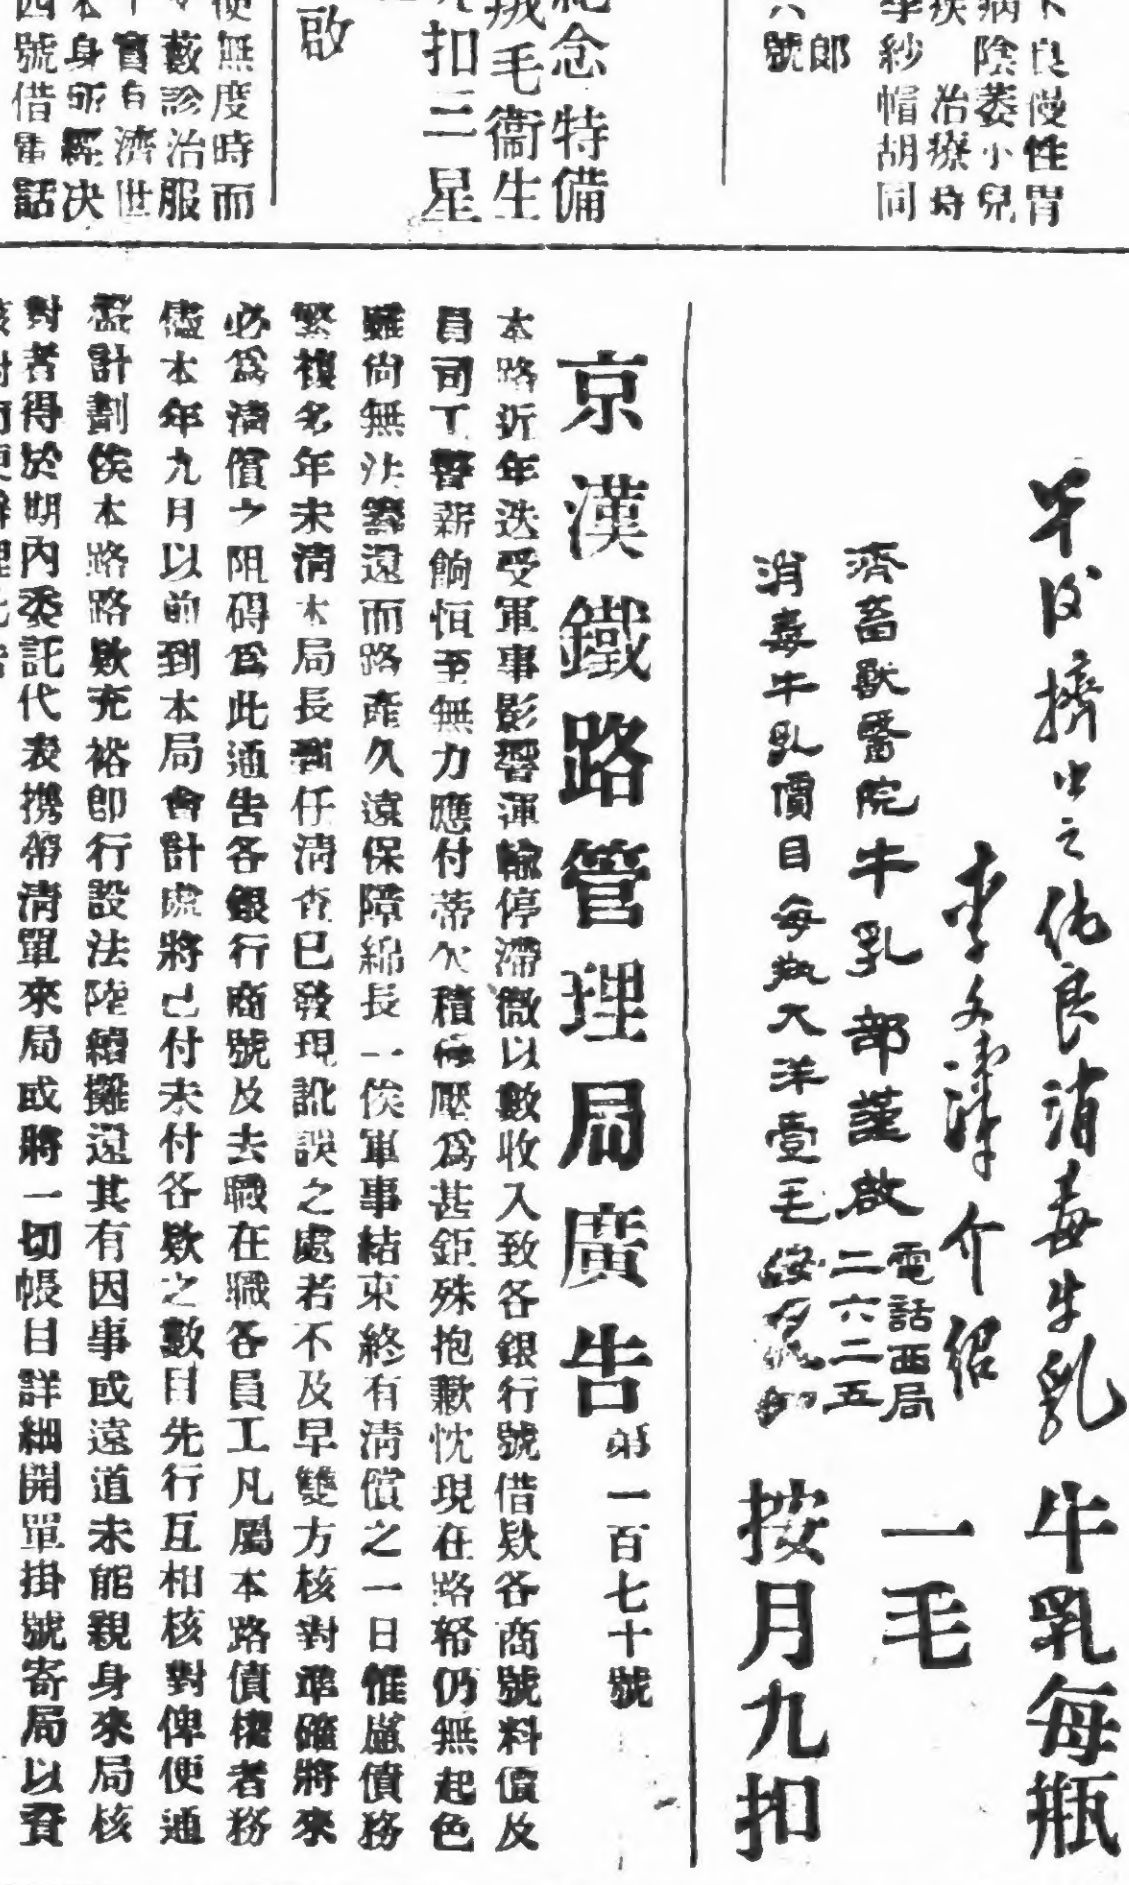 良慢性胃
病陰萎小兒
疾 治療時
紗帽胡同
郎
六號
紀念特備
絨毛衞生
扣三星
啟
便無度時而
藪診治服
實有濟世
本身所經決
四號借電話
早没擠出之純良消毒牛乳
李文津介紹
濟畜獸醫院牛乳部謹啟
電話西局
二六二五
消毒牛乳價目每瓶大洋壹毛按月九扣
牛乳每瓶
一毛
按月九扣
京漢鐵路管理局廣告
第一百七十號
本路近年迭受軍事影響運輸停滯微以數收入致各銀行號借欵各商號料價及
員司工警薪餉恒至無力應付蒂欠積壓爲甚鉅殊抱歉忱現在路帑仍無起色
雖尙無法籌還而路產久遠保障綿長一俟軍事結束終有淸償之一日惟慮債務
繁複多年未淸本局長到任淸查已發現訛誤之處者不及早雙方核對準確將來
必爲淸償之阻碍爲此通吿各銀行商號及去職在職各員工凡屬本路債權者務
儘本年九月以前到本局會計處將已付未付各欵之數目先行互相核對俾便通
盤計劃俟本路路欵充裕卽行設法陸續攤還其有因事或遠道未能親身來局核
對者得於期內委託代表携帶淸單來局或將一切帳目詳細開單掛號寄局以資
核對而便辦理此吿